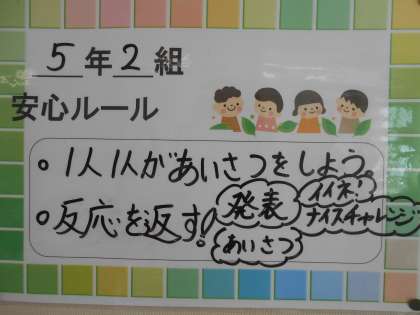 5年2組
安心ルール
○1人1人があいさつをしよう。
○反応を返す。
発表
イイネ!
ナイスチャレンジ
あいさつ